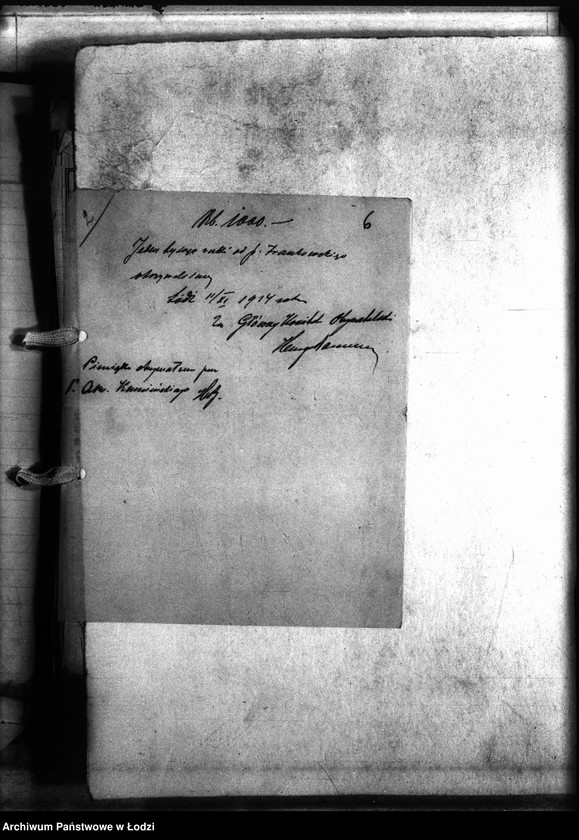 2/
6
Rb. 1000.—
Jeden tysiąc rubli od p. Frankowskiego
otrzymaliśmy
Łódź 11/XI 1914 roku
Za Główny Komitet Obywatelski
Pieniądze otrzymałem przez
P. Kamińskiego
Archiwum Państwowe w Łodzi